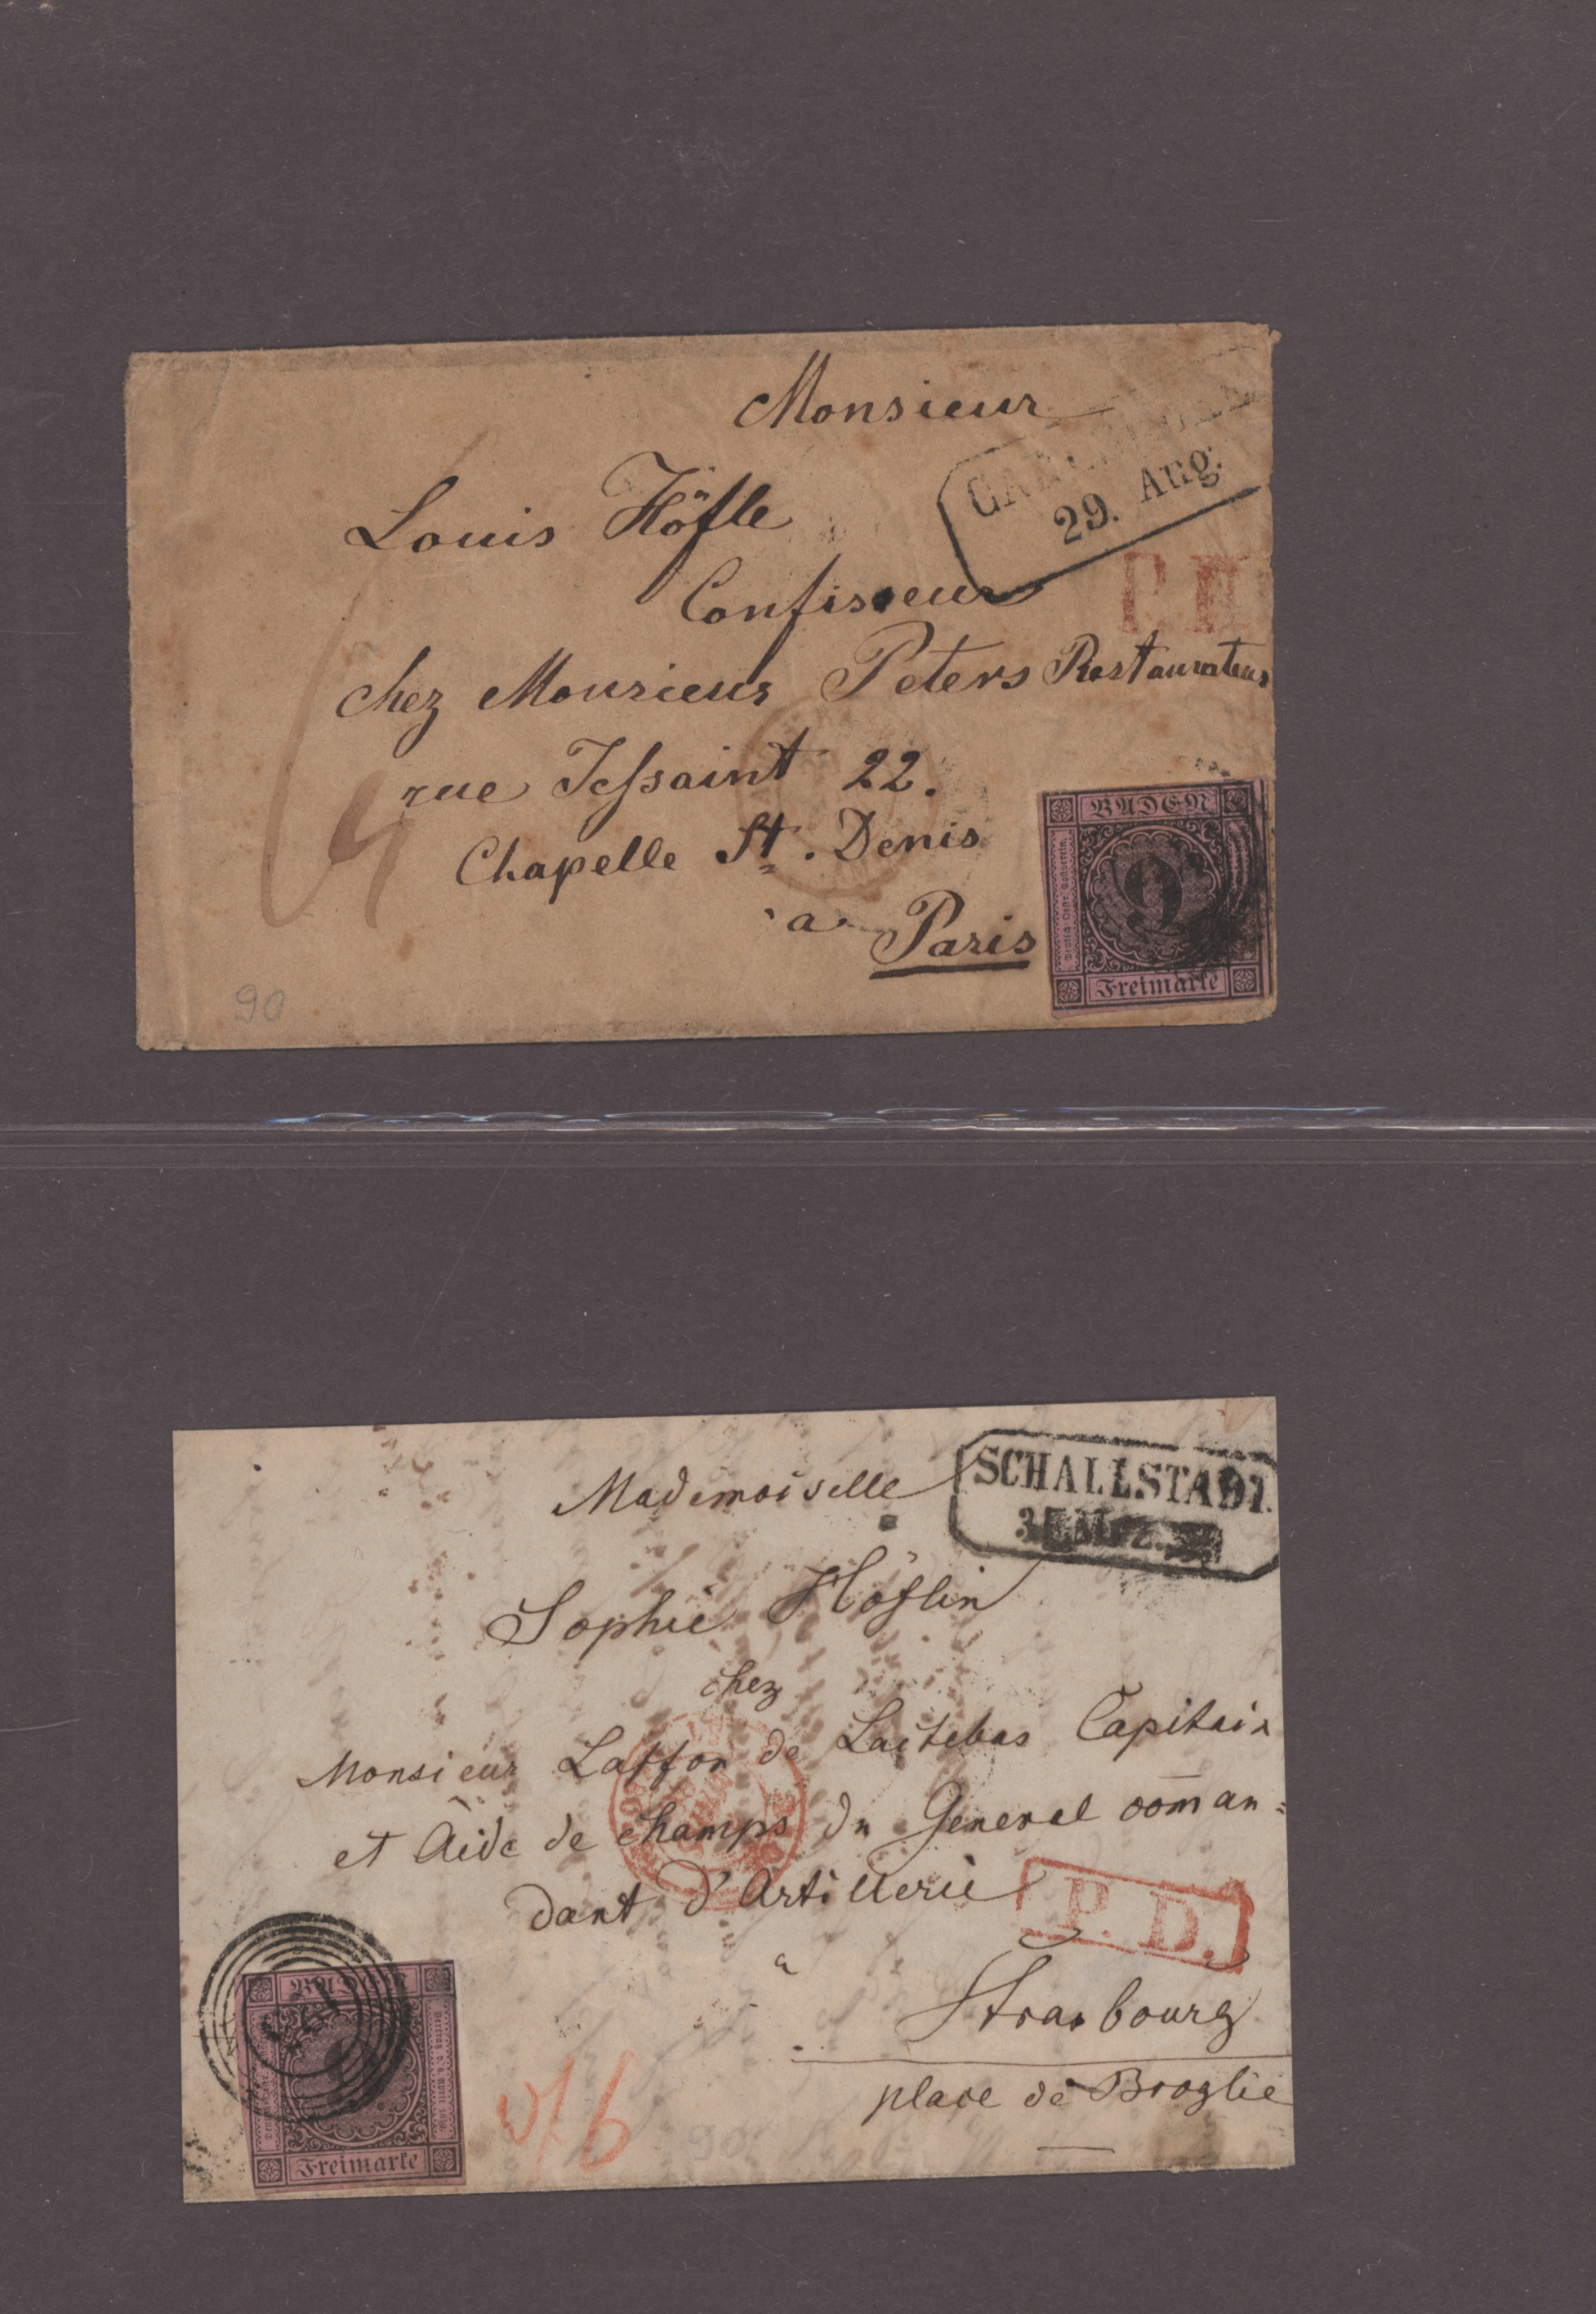 Monsieur
29. Aug.
Louis Höfle
Confiseur
P.
chez Monsieur Peters Restaurateur
rue Jessaint 22.
Chapelle St. Denis
a Paris
90
BADEN
9
Freimarke
SCHALLSTADT.
Mademoiselle
Sophie Höflin
chez
Monsieur Laffon de Capitain
et Aide de champs du General coman=
dant d'Artillerie
P. D.
a
Strasbourg
place de Broglie
BADEN
Freimarke
6